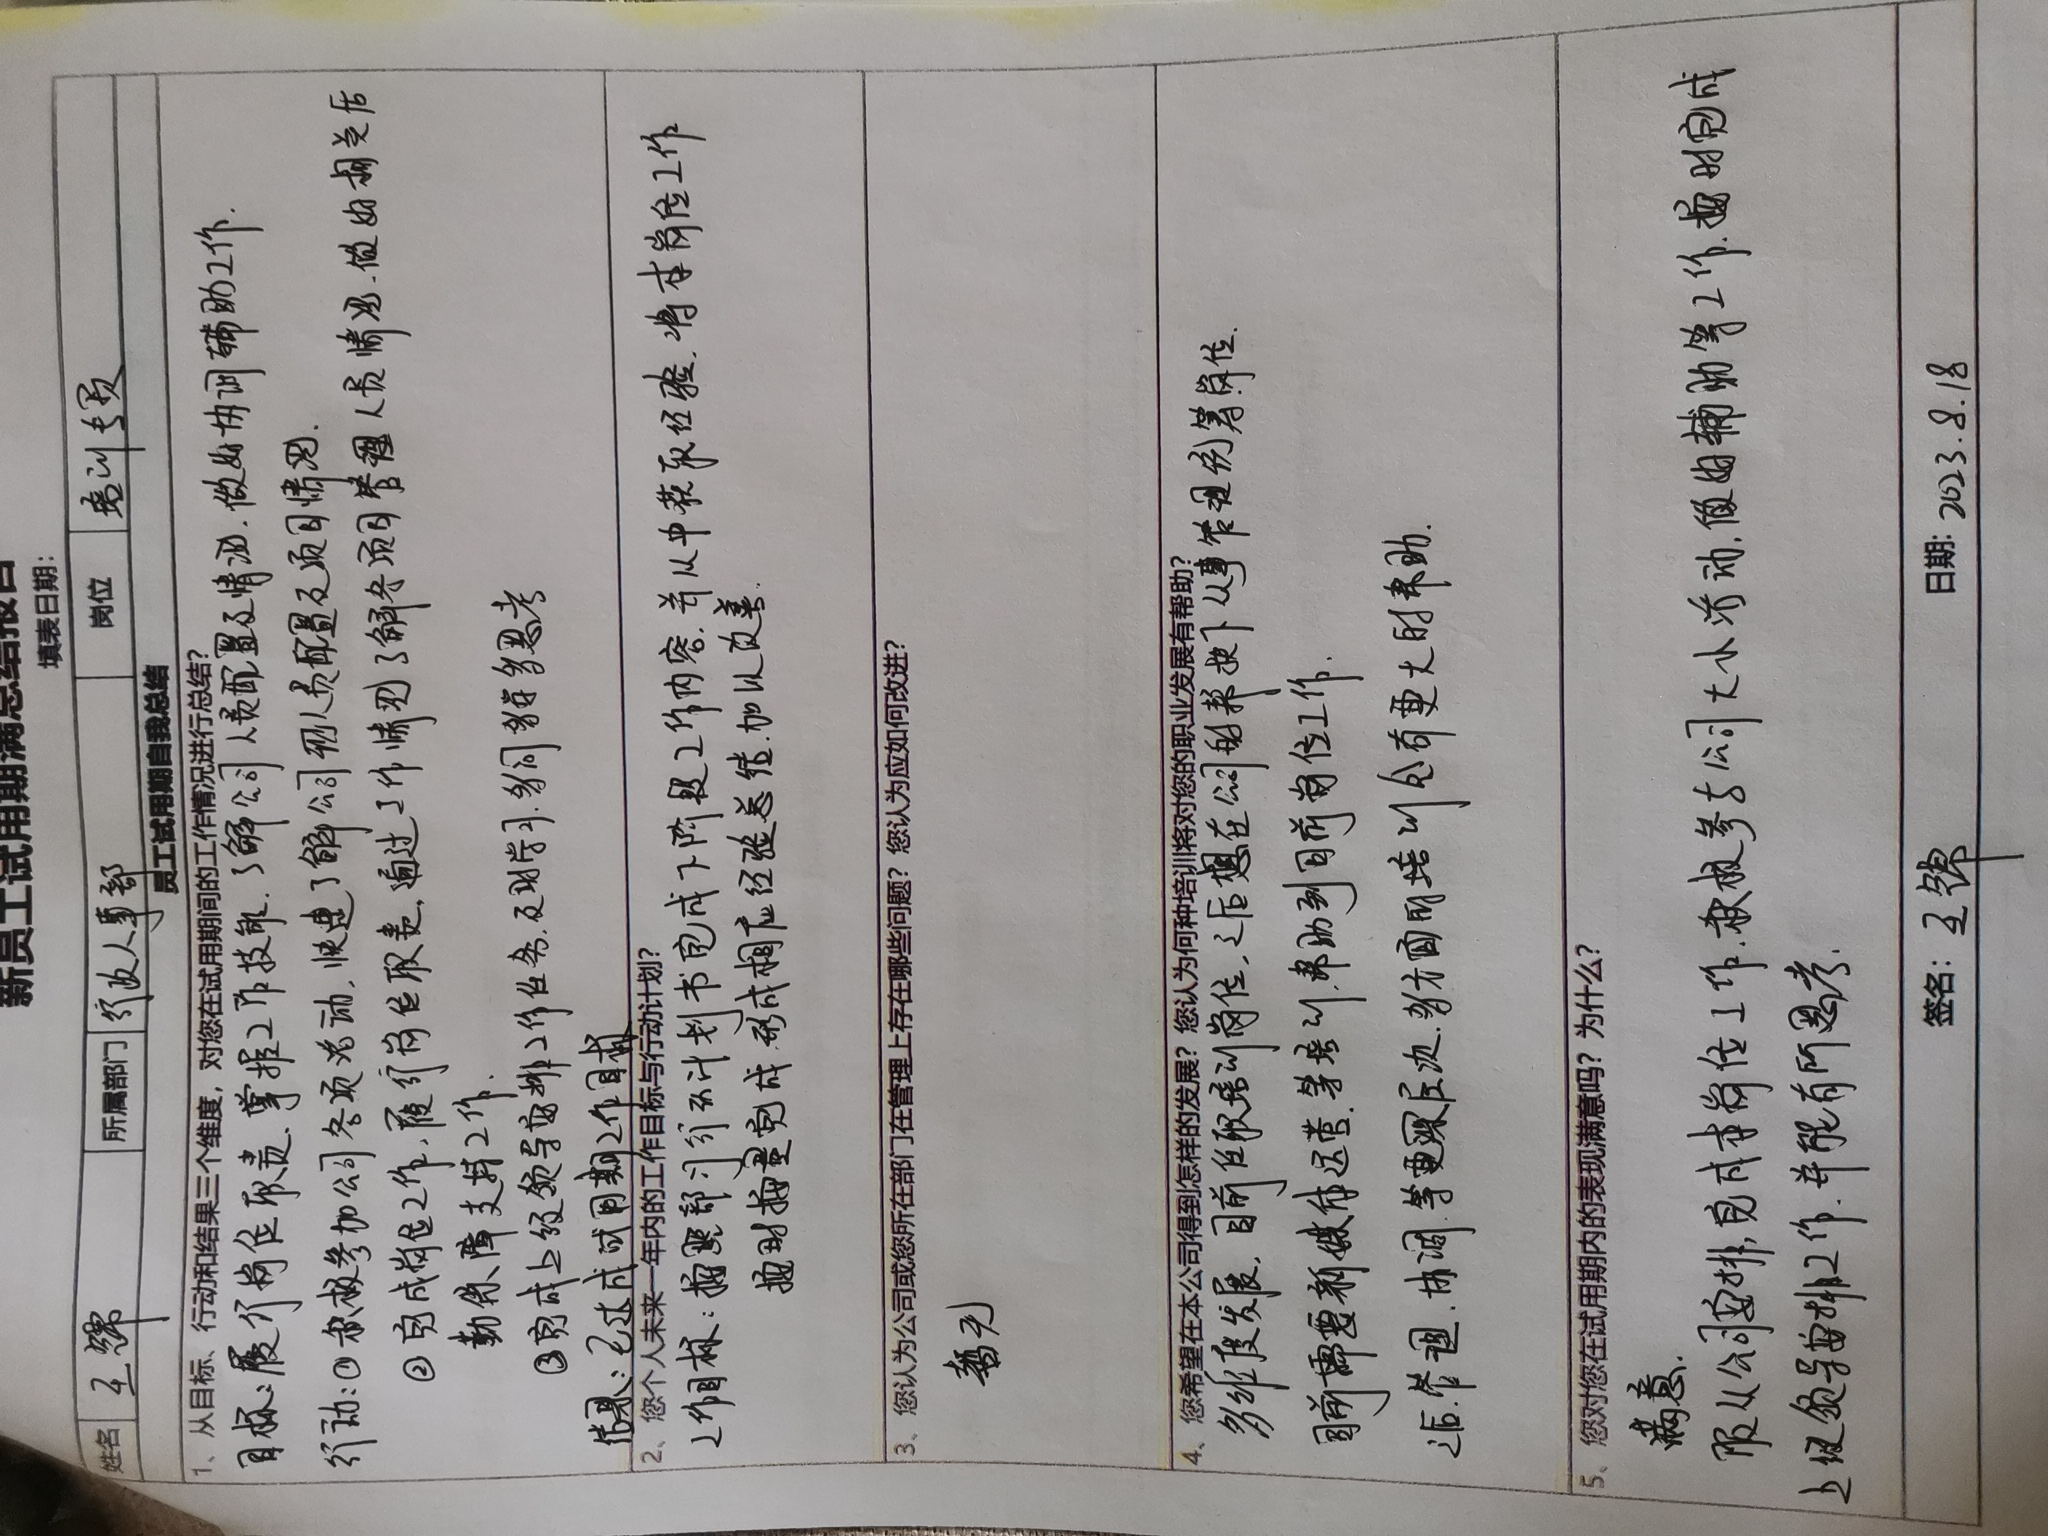 新员工试用期满总结报告
填表日期：
姓名 王 所属部门 行政人事部 岗位 培训专员
员工试用期自我总结
1、从目标、行动和结果三个维度，对您在试用期间的工作情况进行总结？
目标：履行岗位职责、掌握工作技能、了解公司人员配置及情况、做好协调辅助工作.
行动：①积极参加公司各项活动，快速了解公司人员配置及项目情况.
②完成岗位工作，履行岗位职责，通过工作情况了解各项目管理人员情况.做好相关后
勤保障支持工作.
③完成上级领导安排工作任务.及时学习.多问多思考
结果：已达成试用期工作目标
2、您个人未来一年内的工作目标与行动计划？
工作目标：按照部门行动计划书完成下阶段工作内容.并从中获取经验.将本岗位工作
按时按量完成.形成相应经验总结.加以改善.
3、您认为公司或您所在部门在管理上存在哪些问题？您认为应如何改进？
暂无
4、您希望在本公司得到怎样的发展？您认为何种培训将对您的职业发展有帮助？
多维度发展，目前任职培训岗位，之后想在公司的帮扶下从事管理岗等岗位.
目前需要新媒体运营等培训.帮助到目前岗位工作.
之后.管理.协调.等更深层次.多方面的培训会有更大的帮助.
5、您对您在试用期内的表现满意吗？为什么？
满意.
服从公司安排，完成本岗位工作.积极参与公司大小活动.做好辅助等工作.按时完成
上级领导安排工作.并能有所思考.
签名：王 日期：2023.8.18